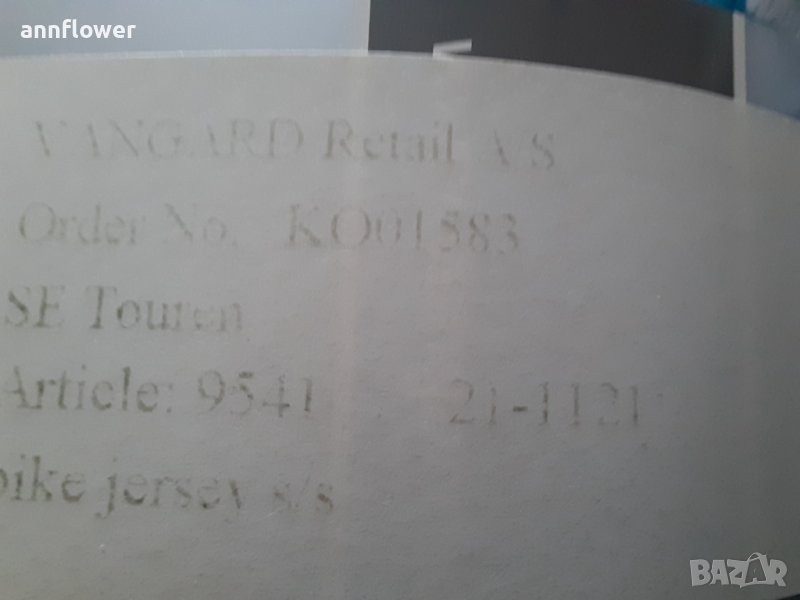 annflower
VANGARD Retail A/S
Order No. KO01583
SE Touren
Article: 9541 21-1121
bike jersey s/s
BAZAR